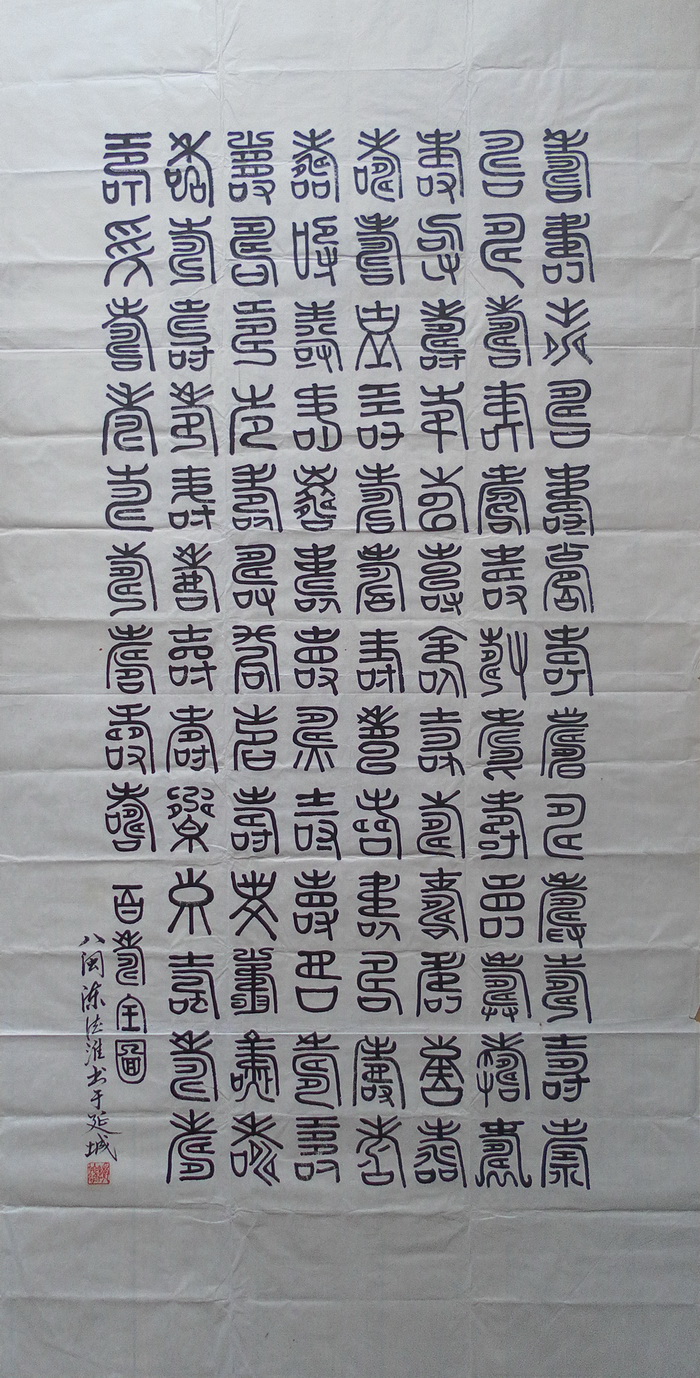 壽壽壽壽壽壽壽壽壽壽壽壽壽
壽壽壽壽壽壽壽壽壽壽壽壽壽
壽壽壽壽壽壽壽壽壽壽壽壽壽
壽壽壽壽壽壽壽壽壽壽壽壽壽
壽壽壽壽壽壽壽壽壽壽壽壽壽
壽壽壽壽壽壽壽壽壽壽壽壽壽
壽壽壽壽壽壽壽壽壽壽壽壽壽
壽壽壽壽壽壽壽壽壽百壽全圖
八闽陈德淮书于延城